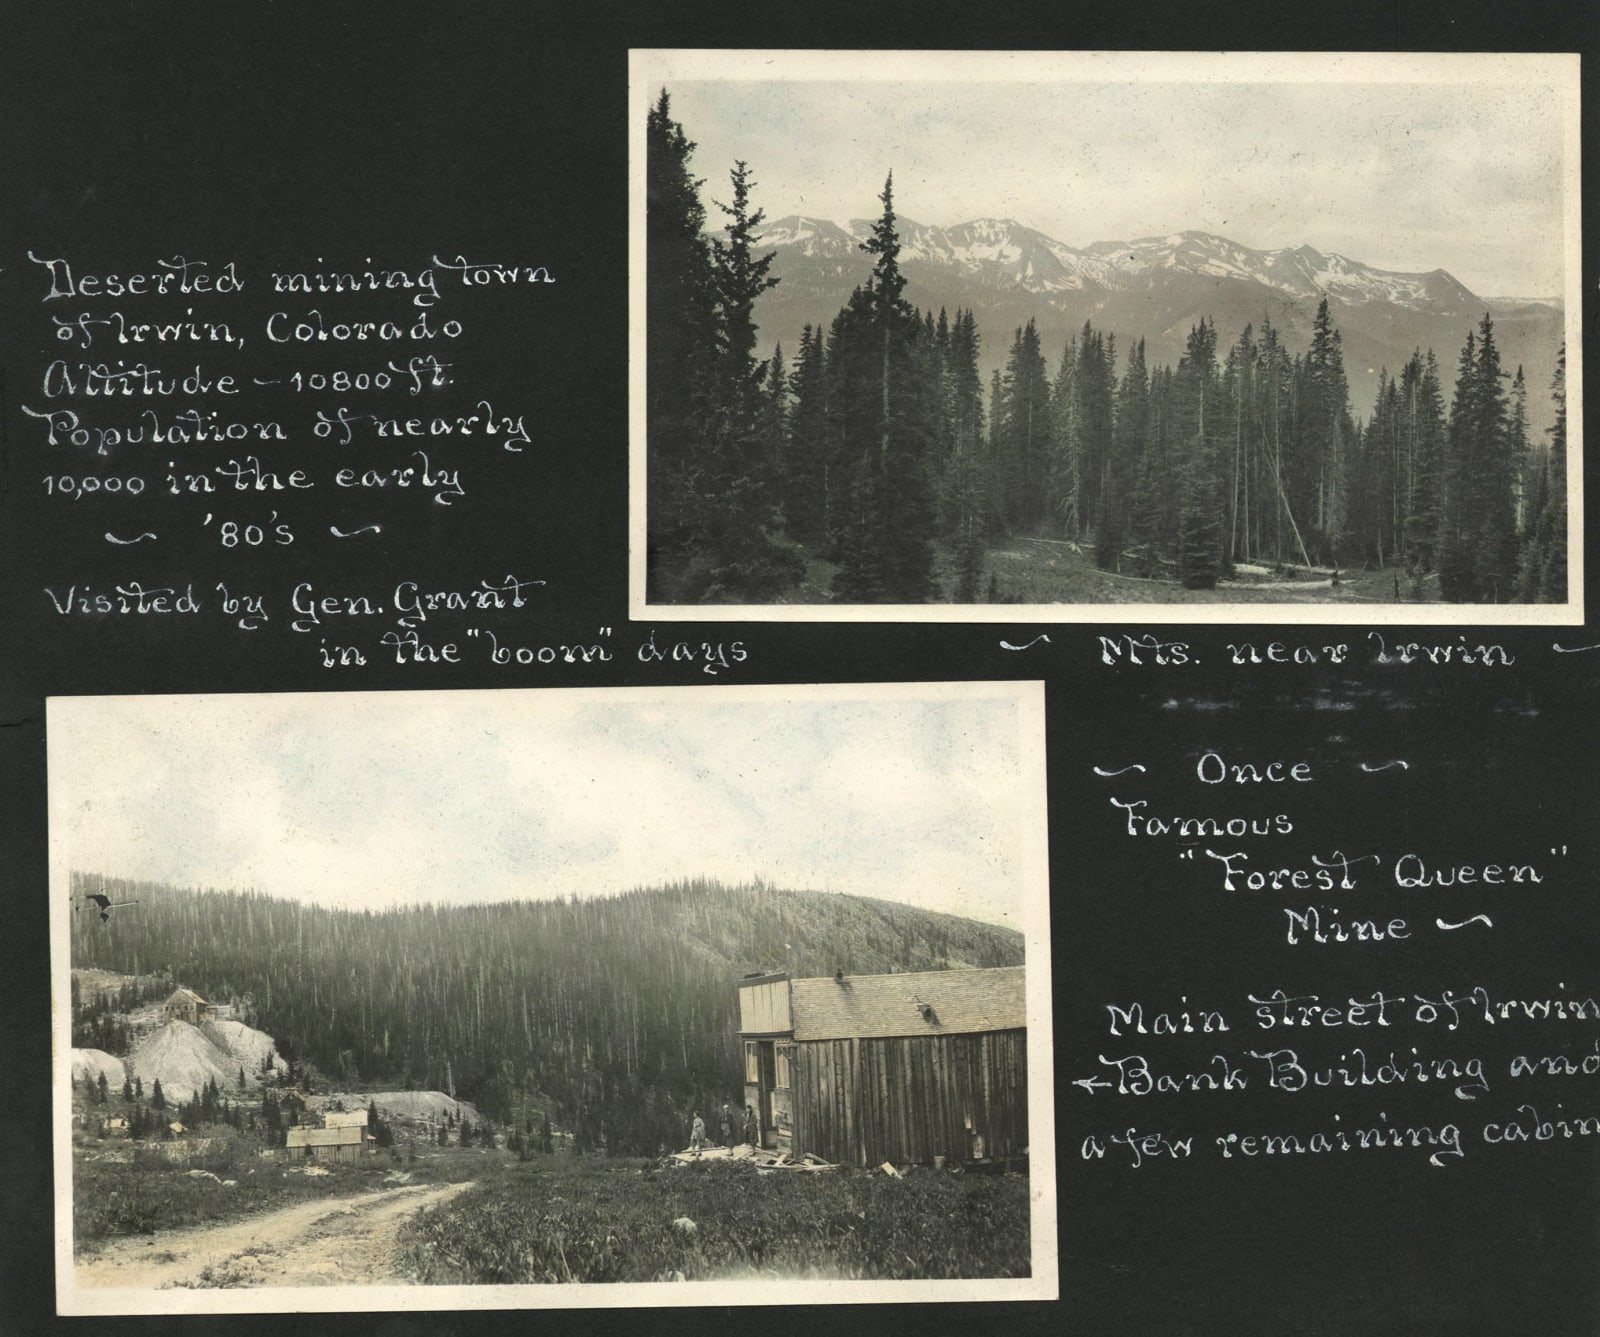 Deserted mining town
of Irwin, Colorado
Altitude - 10800 ft.
Population of nearly
10,000 in the early
~ '80's ~
Visited by Gen. Grant
in the "boom" days
~ Mts. near Irwin ~
~ Once ~
Famous
"Forest Queen"
Mine ~
Main street of Irwin
←Bank Building and
a few remaining cabin